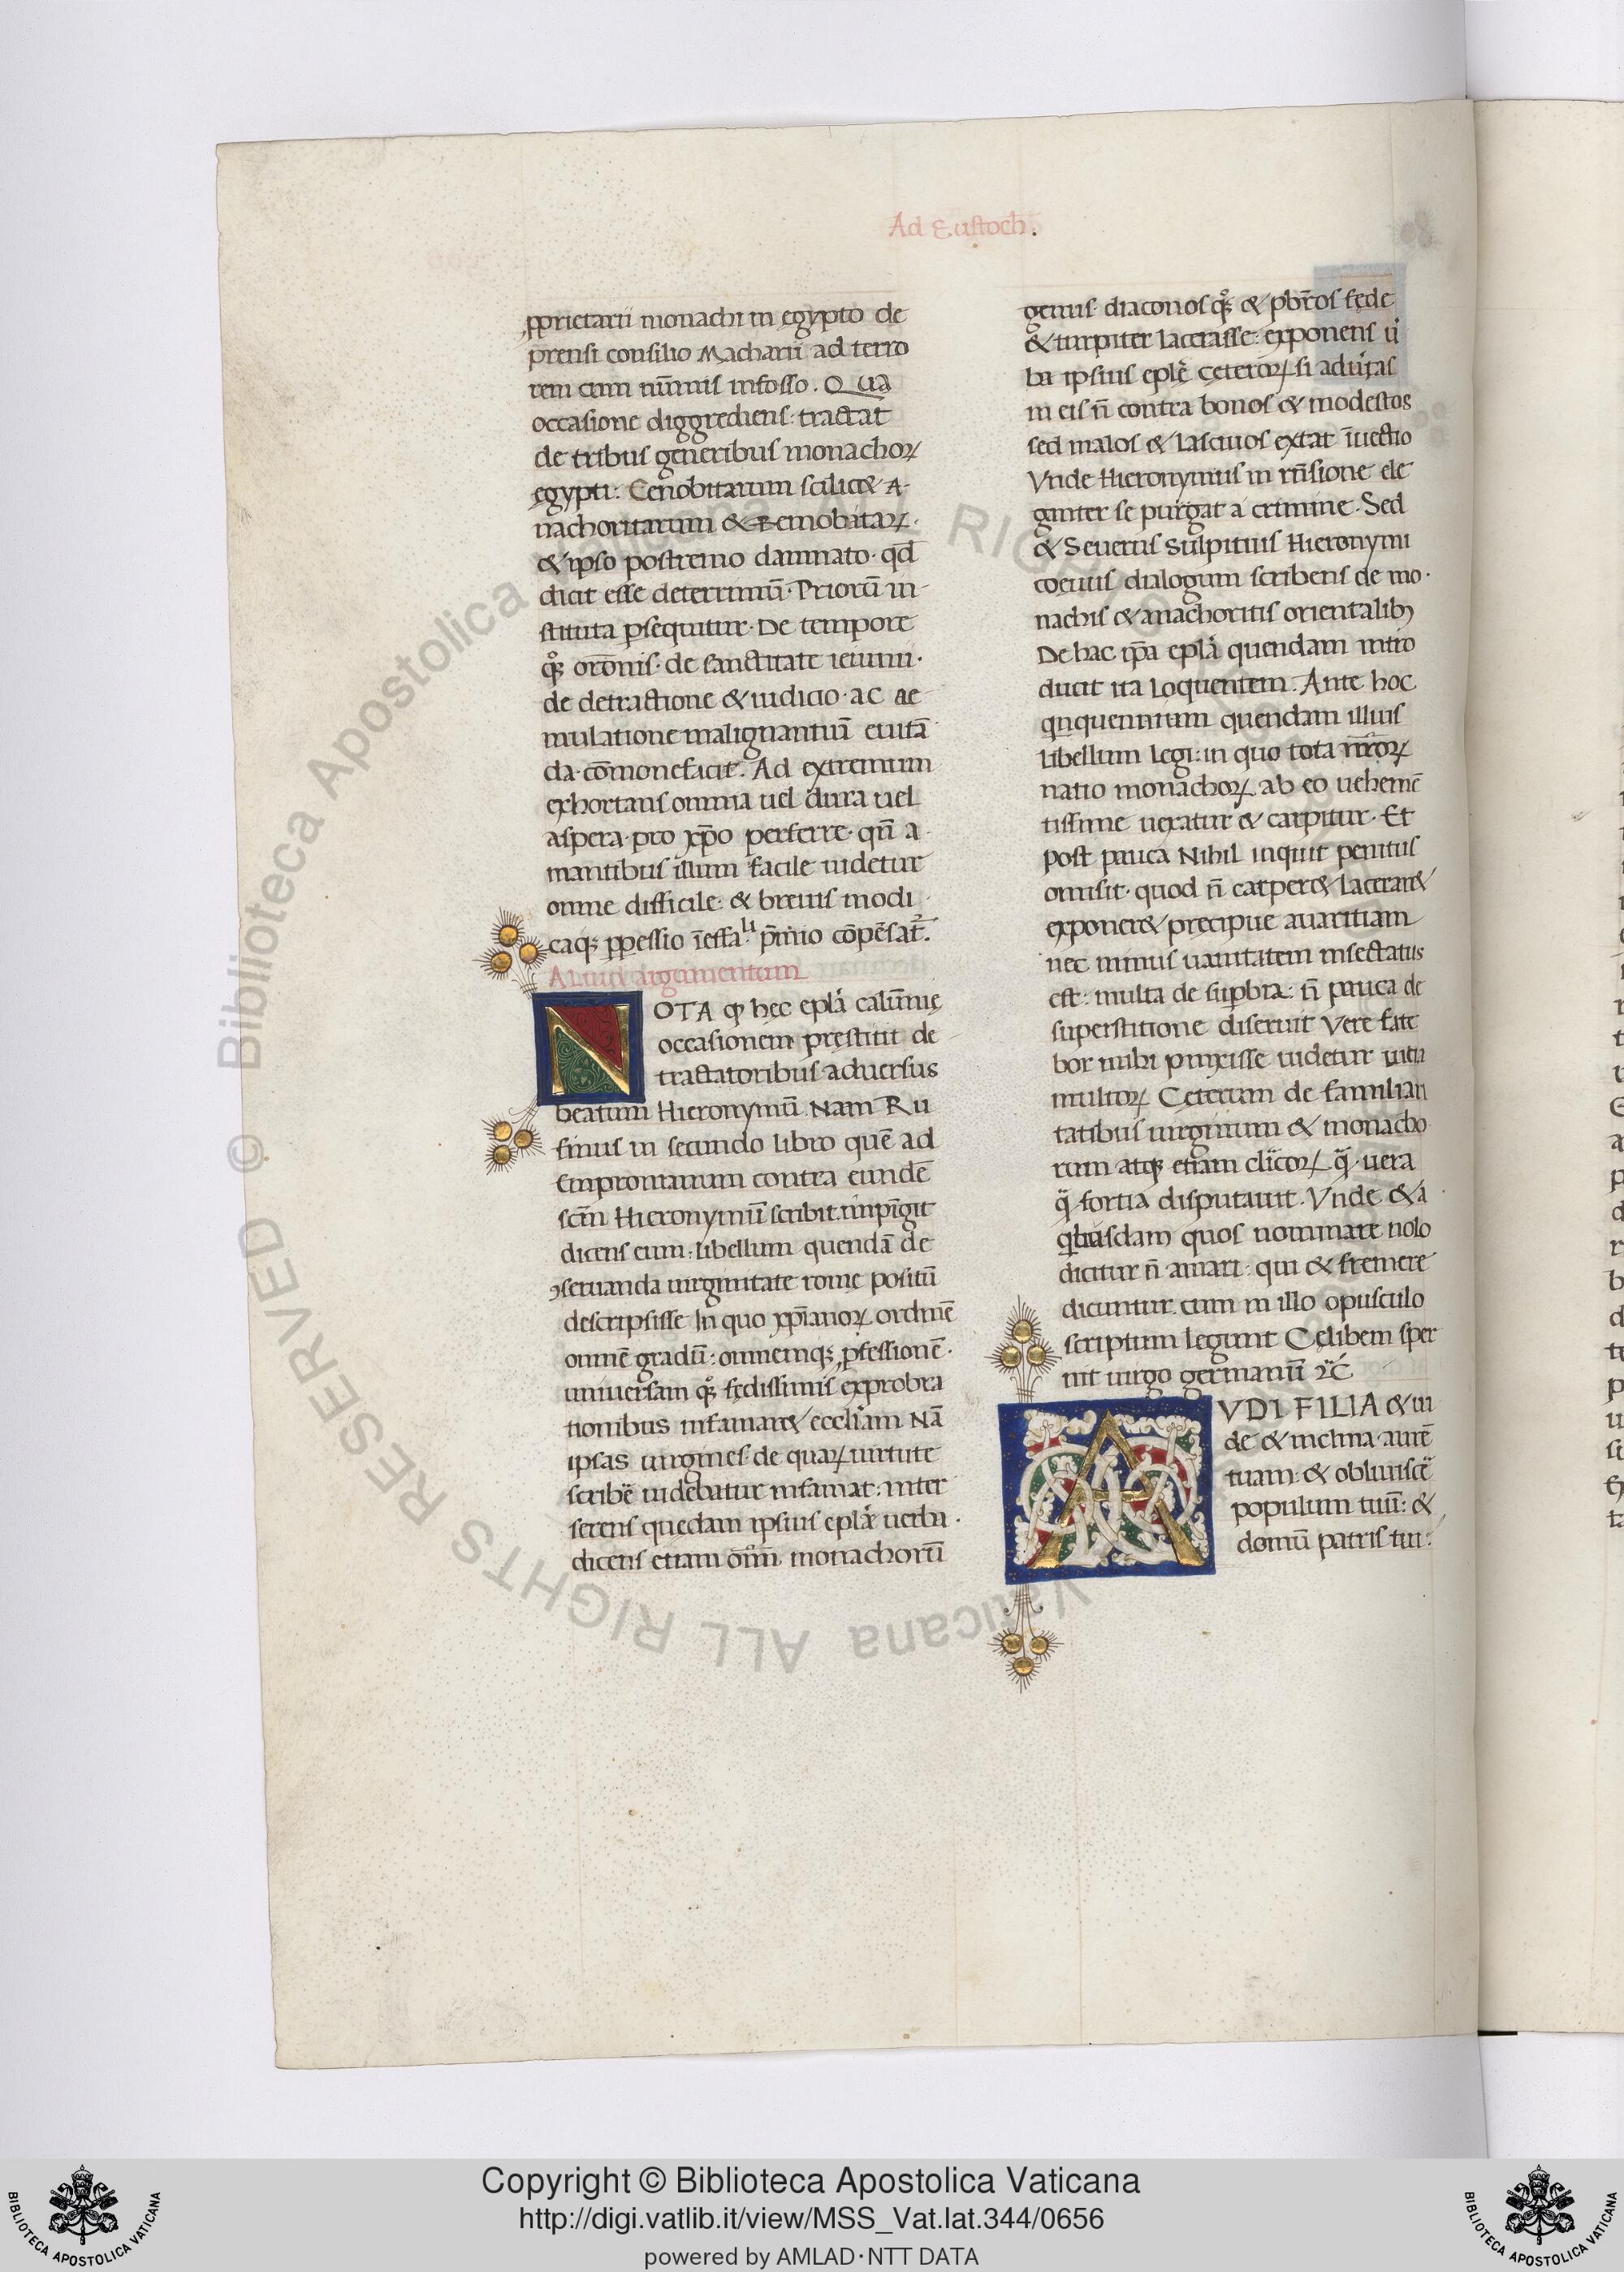 Ad Eustoch.
ꝓprietarii monachi in egypto de
prensi consilio Macharii ad terro
rem cum nūmis infosso. Qua
occasione diggrediens: tractat
de tribus generibus monachoꝝ
egypti: Cenobitarum scilicet A-
nachoritarum & Remobitaꝝ.
& ipso postremo damnato. qđ
dicit esse deterrimū. Priorū in-
stituta ꝑsequitur. De tempore
qꝫ orōnis. de sanctitate ieiunii.
de detractione & iudicio. ac ae
mulatione malignantiū euitā
da. cōmonefacit. Ad extremum
exhortans omnia uel dura uel
aspera. pro xp̄o perferre. qn̄ a
mantibus illum facile uidetur
omne difficile: & breuis modi
caqꝫ ꝑpessio īeffali p̄mio cōpēsat̄.
Aliud argumentum
NOTA ꝙ hec epl̄a calūnię
occasionem prestitit de
tractatoribus aduersus
beatum Hieronymū. Nam Ru
finus in secundo libro quē ad
Empronianum contra eundē
scm̄ Hieronymū scribit. impīgit
dicens eum: libellum quendā de
ꝯseruanda uirginitate rome positū
descripsisse In quo xp̄ianoꝝ ordinē
omnē gradū: omnemqꝫ ꝓfessionē.
uniuersam qꝫ fędissimis exprobra
tionibus infamaret eccl̄iam Nā
ipsas uirgines. de quaꝝ uirtute
scribē uidebatur infamat: inter
serens quedam ipsius epl̄ę uerba.
dicens etiam om̄n̄ monachorū
genus. diaconos qꝫ & pbr̄os fęde
& turpiter lacerasse: exponens ū
ba ipsius epl̄ę ceteroꝝ si aduertas
in eis n̄ contra bonos & modestos
sed malos & lasciuos extat īuectio
Vnde Hieronymus in rn̄sione ele
ganter se purgat a crimine. Sed
& Seuerus Sulpitius Hieronymi
coeuus dialogum scribens de mo.
nachis & anachoritis orientalibꝫ
De hac ip̄a epl̄a quendam intro
ducit ita loquentem. Ante hoc
qnquennium quendam illius
libellum legi: in quo tota nr̄oꝝ
natio monachoꝝ. ab eo uehemē
tissime uexatur & carpitur. Et
post pauca Nihil inquit penitus
omisit. quod n̄ carperet laceraret
exponeret precipue auaritiam
nec minus uanitatem insectatus
est: multa de suꝑbia: n̄ pauca de
superstitione diseruit Vere fate
bor mihi pinxisse uidetur uitia
multoꝝ Ceterum de familiari
tatibus uirginum & monacho
rum atqꝫ etiam clīcoꝝ q̄ uera
q̄ fortia disputauit. Vnde & a
qbusdam quos nominare nolo
dicitur n̄ amari: qui & fremere
dicuntur. cum in illo opusculo
scriptum legunt Celibem sper
nit uirgo germanū ⁊c̄
AVDI FILIA & ui
de & inclina aurē
tuam: & obliuiscē
populum tuū: &
domū patris tui:
© Biblioteca Apostolica Vaticana ALL RIGHTS RESERVED
Copyright © Biblioteca Apostolica Vaticana
http://digi.vatlib.it/view/MSS_Vat.lat.344/0656
powered by AMLAD·NTT DATA
BIBLIOTECA APOSTOLICA VATICANA
BIBLIOTECA APOSTOLICA VATICANA